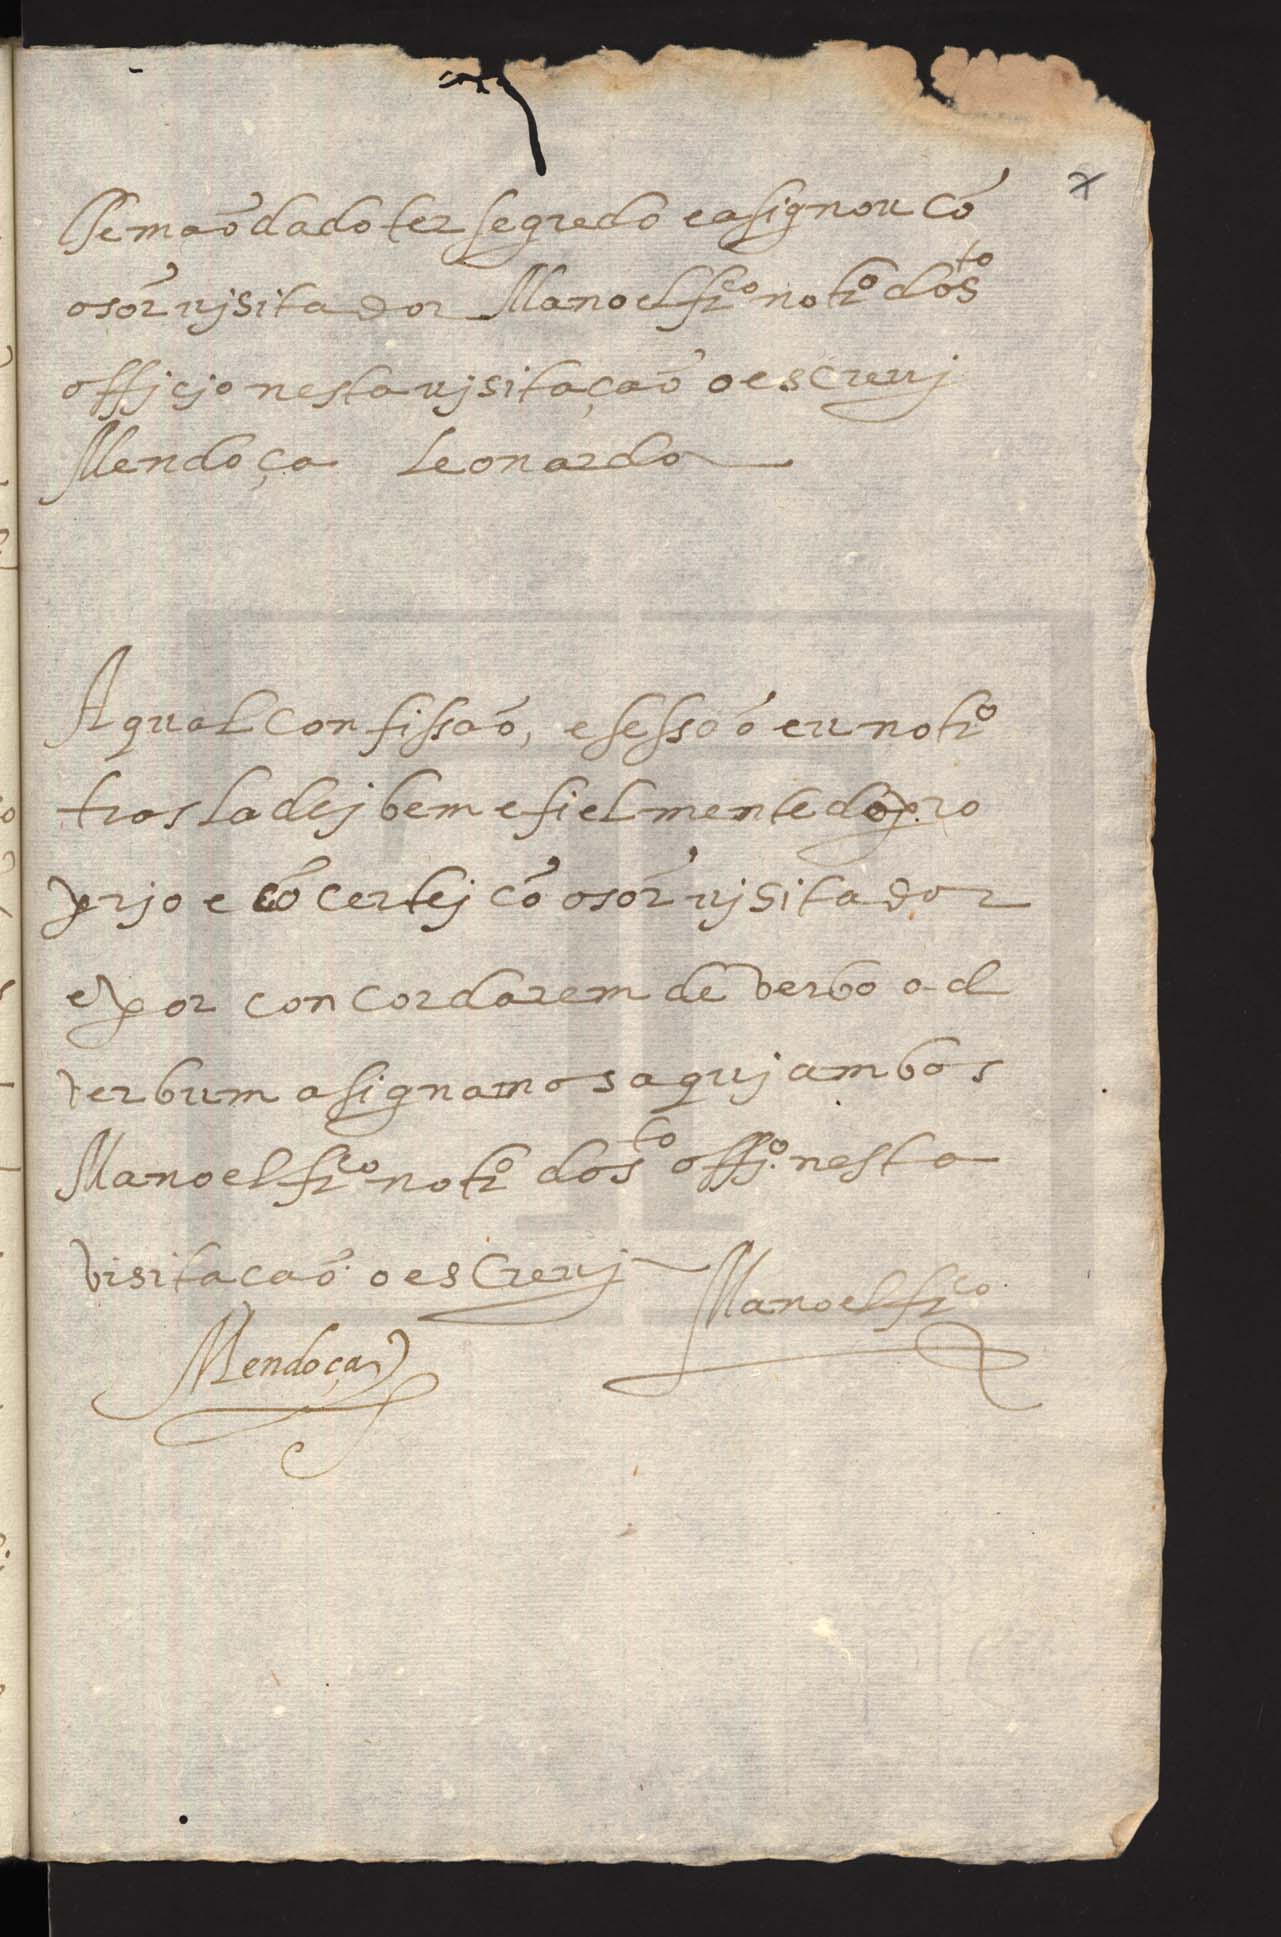 lhe mãodado ter segredo e asignou cõ
o sor uisitador Manoel frco notro do sto
officio nesta uisitação o escreuj
Mendoça Leonardo
A qual confissão, e sessão eu notro
trasladej bem e fielmente do pro
prio e cõcertej cõ o sor uisitador
e por concordarem de verbo ad
verbum asignamos aquj ambos
Manoel frco notro do sto offo. nesta
visitacão o escreuj Manoel frco
Mendoça